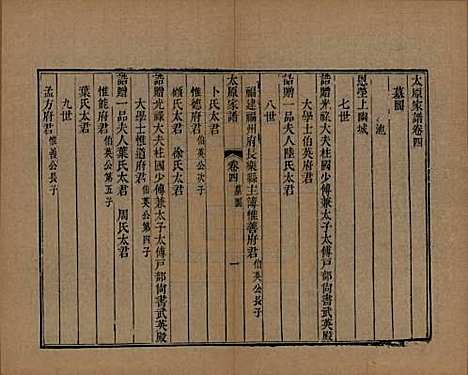 太原家譜卷四
墓圖
池
恩榮上關城
七世
誥贈光祿大夫柱國少傅兼太子太傅戶部尚書武英殿
大學士伯英府君
誥贈一品夫人陸氏太君
八世
福建福州府長樂縣主簿惟善府君伯英公長子
太原家譜 卷四墓圖 一
卜氏太君
惟德府君伯英公次子
顧氏太君 徐氏太君
誥贈光祿大夫柱國少傅兼太子太傅戶部尚書武英殿
大學士惟道府君伯英公第四子
誥贈一品夫人葉氏太君 周氏太君
惟能府君伯英公第五子
葉氏太君
九世
孟方府君惟善公長子